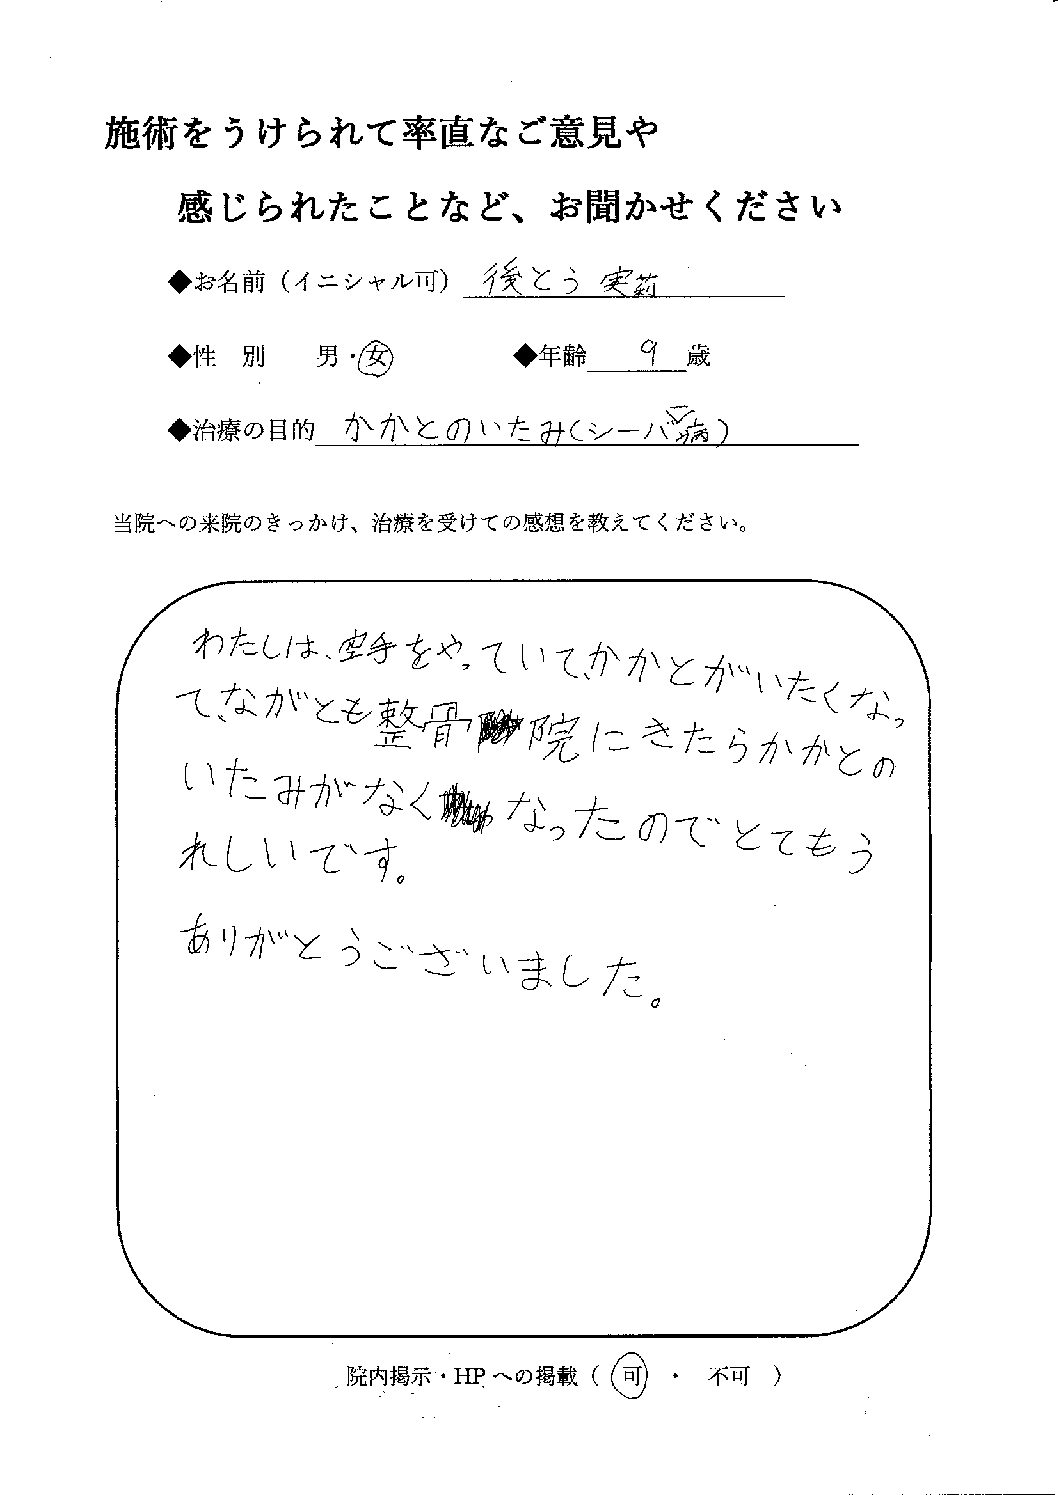 施術をうけられて率直なご意見や
感じられたことなど、お聞かせください
◆お名前（イニシャル可） 後とう 実莉
◆性 別 男・女 ◆年齢 9 歳
◆治療の目的 かかとのいたみ(シーバー病)
当院への来院のきっかけ、治療を受けての感想を教えてください。
わたしは、空手をやっていて、かかとがいたくなっ
て、ながとも整骨院にきたらかかとの
いたみがなくなったのでとてもう
れしいです。
ありがとうございました。
院内掲示・HPへの掲載（ 可 ・ 不可 ）